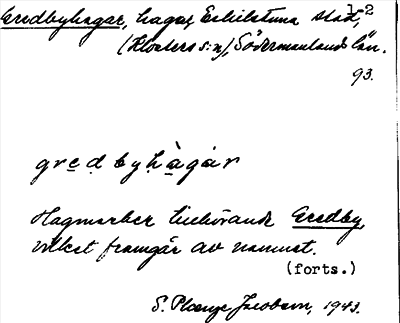 Gredbyhagar, hagar, Eskilstuna stad, 1-2
(Klosters s:n), Södermanlands län.
93.
gre̱ḍ byḥà̱gár
Hagmarker tillhörande Gredby,
vilket framgår av namnet.
(forts.)
S. Plænge Jacobson, 1943.